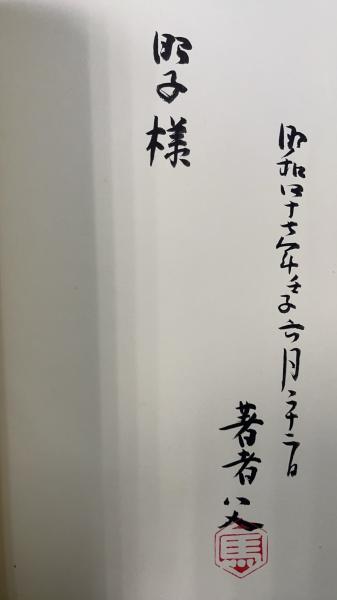 昭和四十七年壬子六月二十二日
著者
馬
昭子様